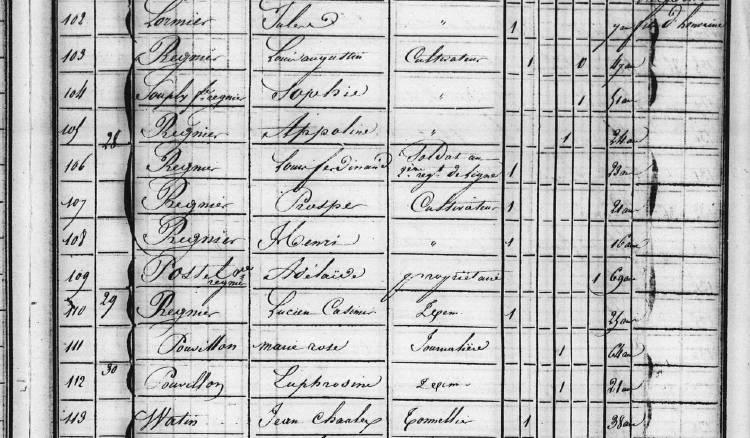 102 Lormier Jules " 1 7 an fils d'honorine
103 Regnier Louis augustin Cultivateur 1 0 47 an
104 Souply fe regnier Sophie " 1 51 an
105 28 Regnier Appoline " 1 24 an
106 Regnier Louis ferdinand Soldat au 2ème regt de ligne 1 23 an
107 Regnier Prosper Cultivateur 1 20 an
108 Regnier Henri " 1 16 an
109 Postel vve regnier Adélaïde propriétaire 1 69 an
110 29 Regnier Lucien Casimir Idem 1 25 an
111 Pouvillon marie rose Journalière 1 an
112 30 Pouvillon Euphrosine Idem 1 21 an
113 Watin Jean Charles Tonnellier 1 38 an